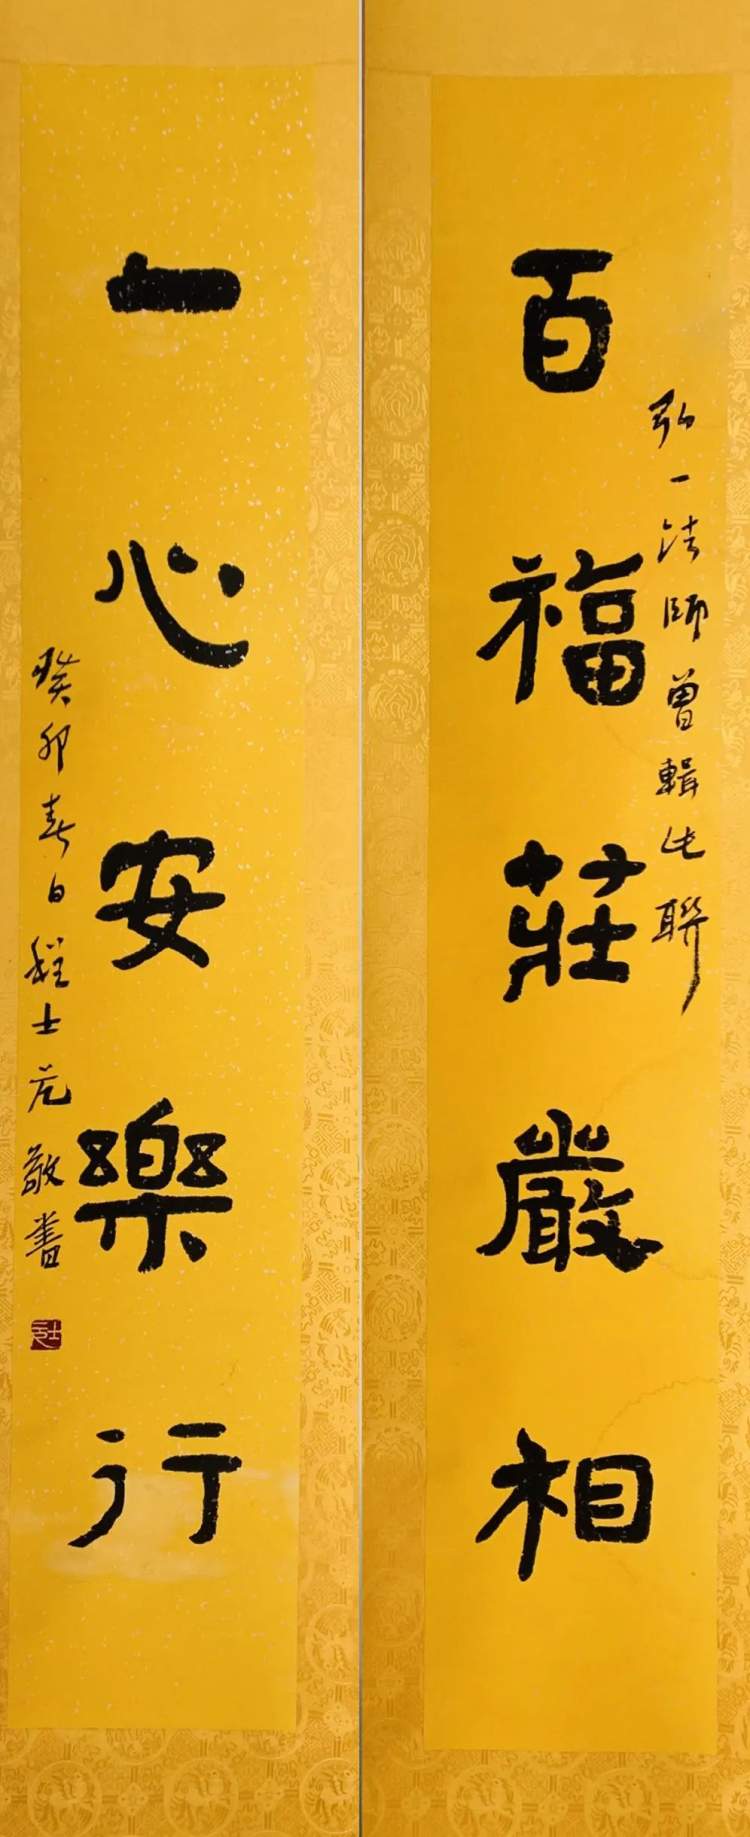 弘一法師曾輯此聯
百福莊嚴相
一心安樂行
癸卯春日程士元敬書